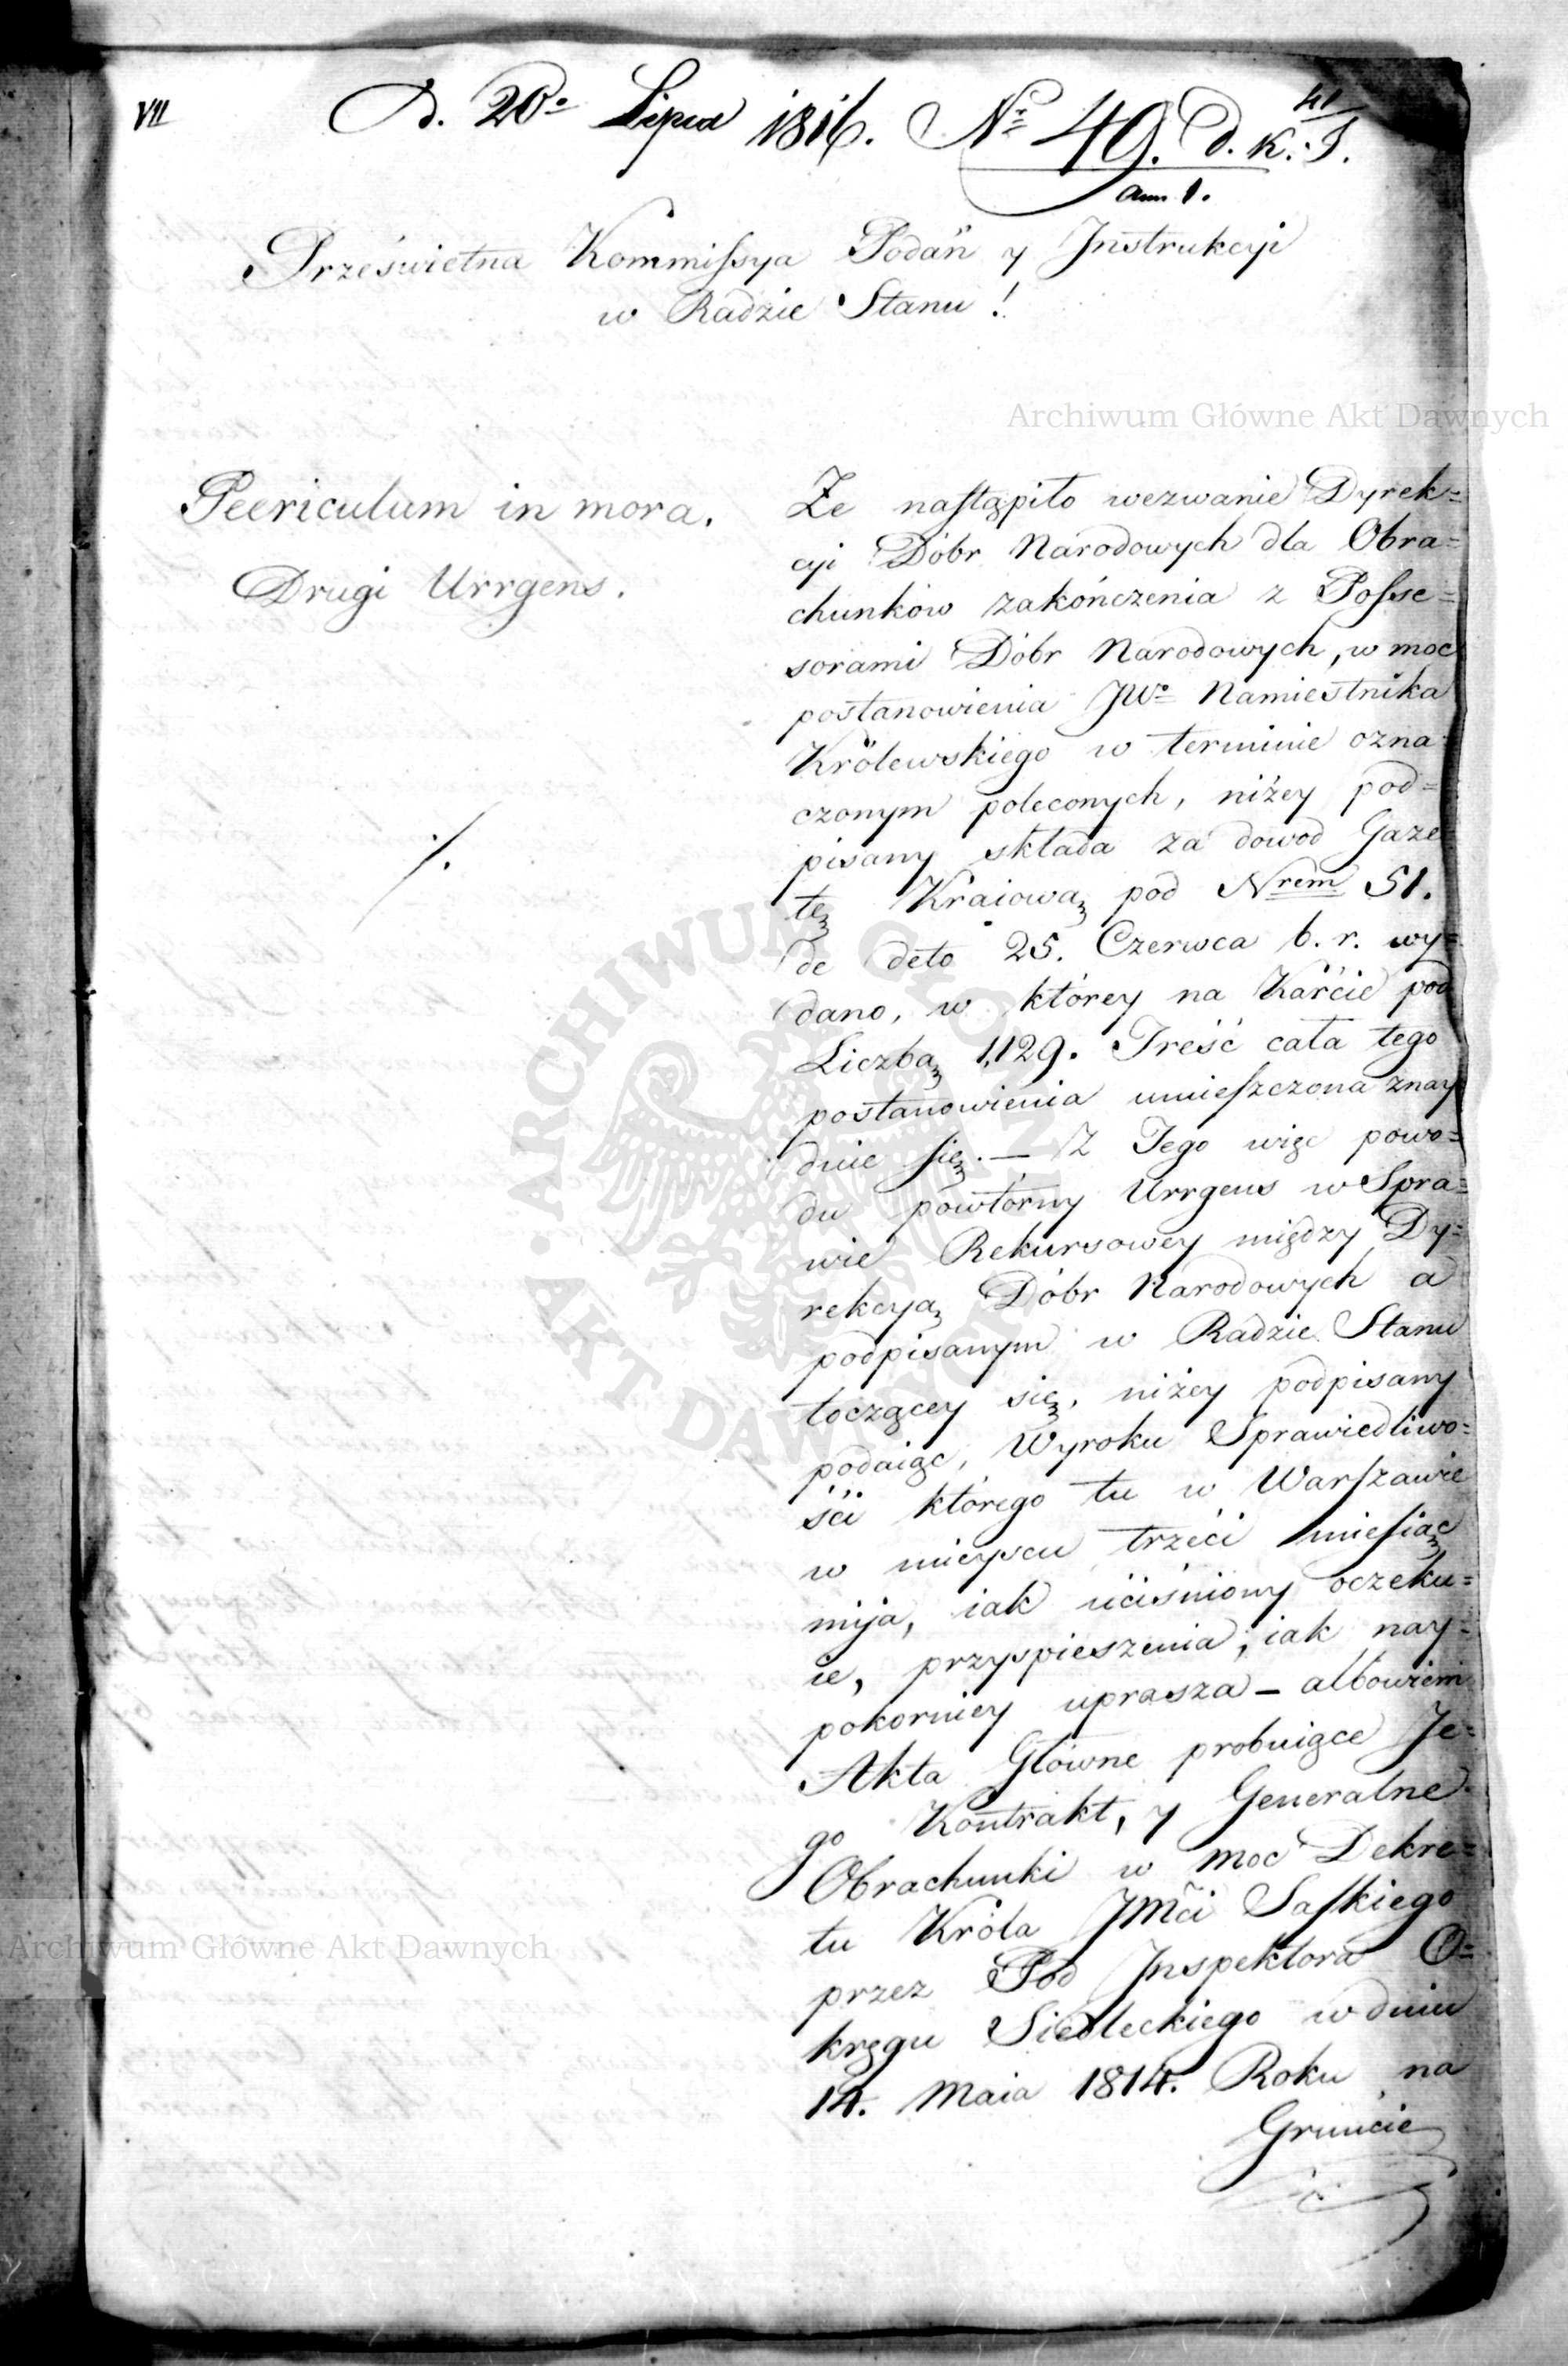 VII
D. 20º Lipca 1816. Nº 49. d. K. J.
41
Ann 1.
Prześwietna Kommissya Podań y Instrukcyi
w Radzie Stanu!
Archiwum Główne Akt Dawnych
Peericulum in mora.
Drugi Urrgens.
./.
Że nastąpiło wezwanie Dyrek=
cyi Dóbr Narodowych dla Obra=
chunków zakończenia z Posse=
sorami Dóbr Narodowych, w moc
postanowienia JWº Namiestnika
Królewskiego w terminie ozna=
czonym poleconych, niżey pod=
pisany składa za dowod Gaze=
tę Kraiową pod Nrem 51.
de deto 25. Czerwca b. r. wy=
dano, w którey na Karcie pod
Liczbą 1,129. Treść cała tego
postanowienia umieszczona znay
duie się. — Z Tego więc powo=
du powtórny Urrgens w Spra=
wie Rekursowey między Dy=
rekcyą Dóbr Narodowych a
podpisanym w Radzie Stanu
toczącey się, niżey podpisany
podaiąc, Wyroku Sprawiedliwo=
ści którego tu w Warszawie
w mieyscu trzeci miesiąc
mija, iak uciśniony oczeku=
ie, przyspieszenia, iak nay=
pokorniey uprasza — albowiem
Akta Główne probuiące Je=
go Kontrakt, y Generalne
Obrachunki w moc Dekre=
tu Króla JMci Saskiego
przez Pod Inspektora O=
kręgu Siedleckiego w dniu
14. Maia 1814. Roku na
Gruncie
ARCHIWUM GŁÓWNE • AKT DAWNYCH •
Archiwum Główne Akt Dawnych